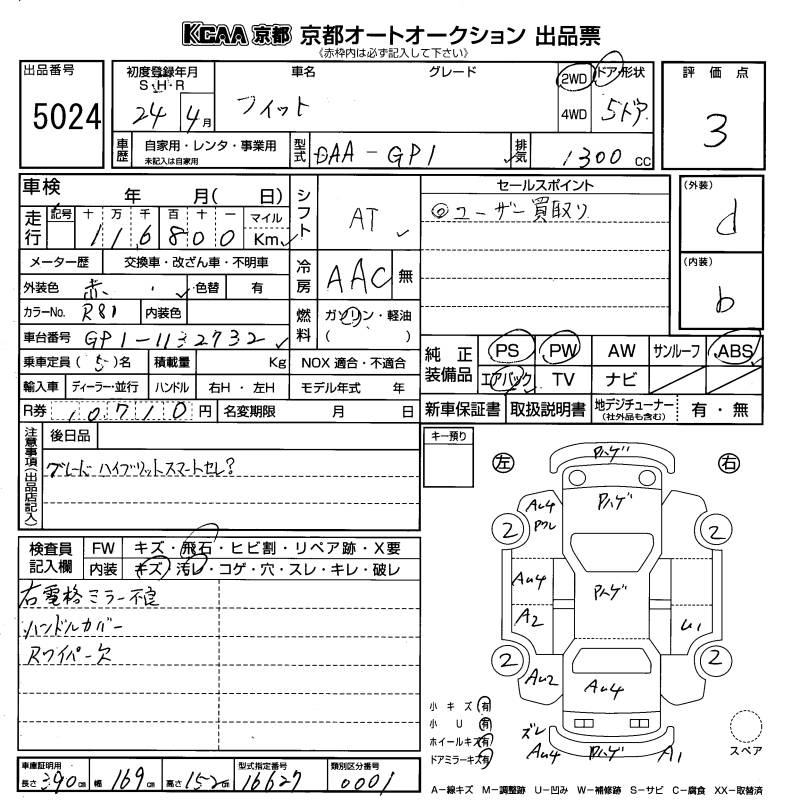 KCAA 京都 京都オートオークション 出品票
《赤枠内は必ず記入して下さい》
出品番号 5024
初度登録年月 S・H・R 24 4月
車名 グレード フィット
2WD 4WD
ドア形状 5ドア
評価点 3
車歴 自家用・レンタ・事業用 未記入は自家用
型式 DAA-GP1
排気 1300 CC
車検 年 月( 日)
シフト AT
セールスポイント
◎ユーザー買取り
(外装) d
(内装) b
走行 記号 十 万 千 百 十 一 マイル Km
116800
メーター歴 交換車・改ざん車・不明車
冷房 AAC 無
外装色 赤 色替 有
カラーNo. R81 内装色
燃料 ガソリン・軽油 ( )
車台番号 GP1-1132732
乗車定員 (5)名 積載量 Kg NOX適合・不適合
輸入車 ディーラー・並行 ハンドル 右H・左H モデル年式 年
R券 10710円 名変期限 月 日
純正装備品 PS PW AW サンルーフ ABS
エアバック TV ナビ
新車保証書 取扱説明書 地デジチューナー (社外品も含む) 有・無
注意事項(出品店記入) 後日品
グレード ハイブリットスマートセレ?
キー預り
左 右
検査員記入欄 FW キズ・飛石・ヒビ割・リペア跡・X要
内装 キズ・汚レ・コゲ・穴・スレ・キレ・破レ
右電格ミラー不良
ハンドルカバー
Rワイパー欠
Pハゲ
Pハゲ
AU4
Pワレ
2 2
AU4 Pハゲ
A2 U1
2 2
AU2 AU4
小キズ 有
小U 有
ホイールキズ 有
ドアミラーキズ 有
ズレ
AU4 Pハゲ A1
スペア
車庫証明用 長さ 390cm 幅 169cm 高さ 152cm
型式指定番号 16627
類別区分番号 0001
A-線キズ M-調整跡 U-凹み W-補修跡 S-サビ C-腐食 XX-取替済